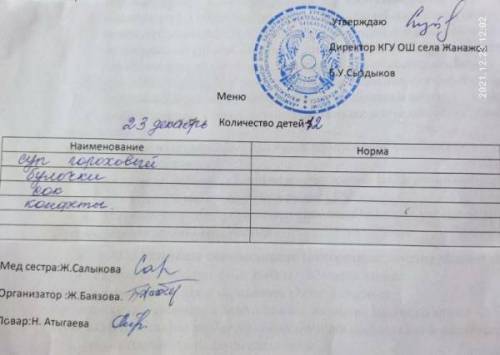 Утверждаю
Директор КГУ ОШ села Жанажо
Б.У.Сыздыков
2021.12.22 12:02
Меню
23 декабрь Количество детей 12
Наименование Норма
суп гороховый
булочки
сок
конфеты.
Мед сестра:Ж.Салыкова
Организатор :Ж.Баязова.
Повар:Н. Атыгаева